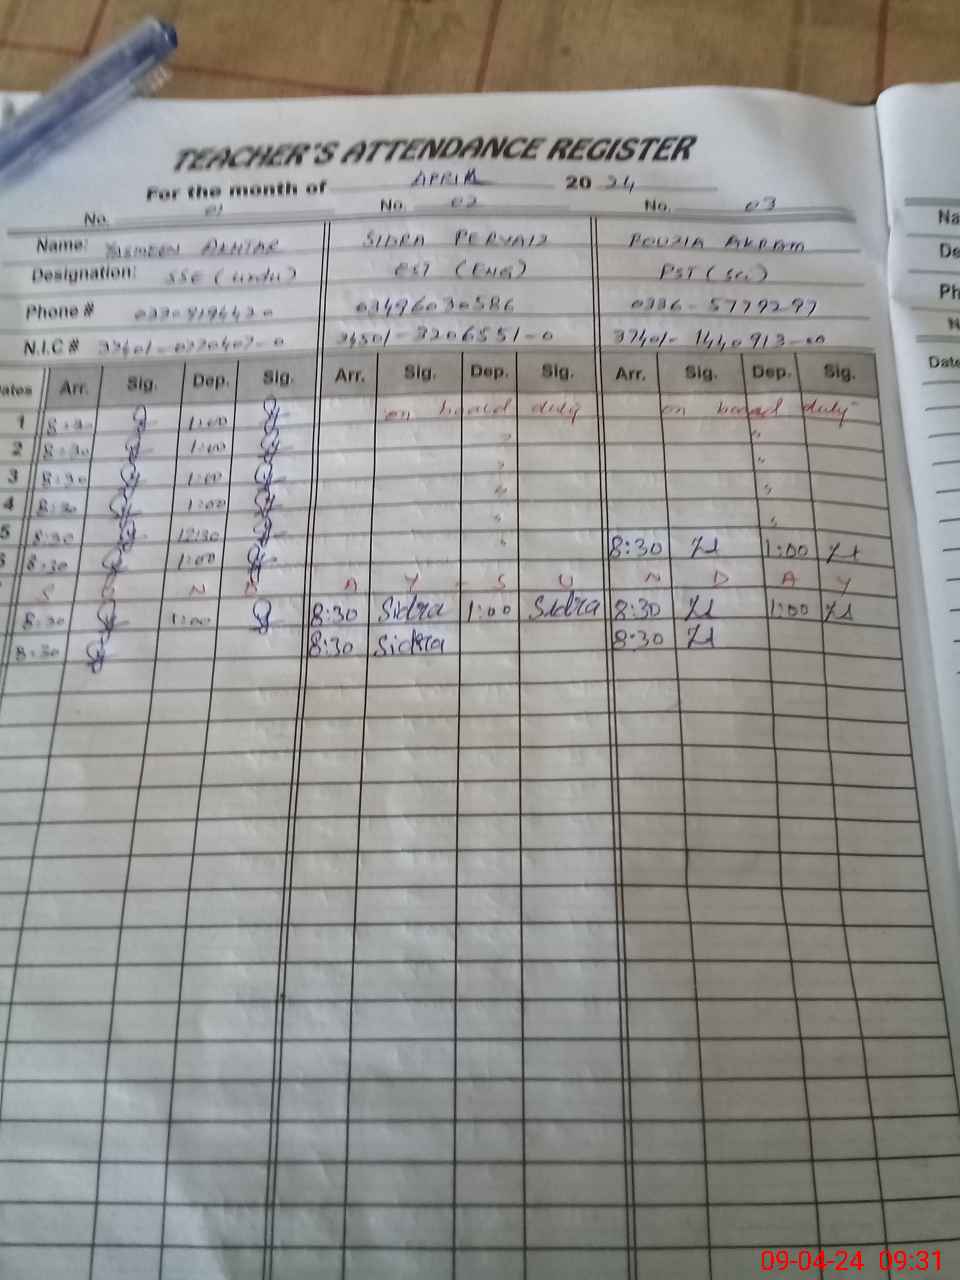 TEACHER'S ATTENDANCE REGISTER
For the month of APRIL 20 24
No. 01 No. 02 No. 03
Name: YASMEEN AKHTAR SIDRA PERVAIZ FOUZIA AKRAM
Designation: SSE (Urdu) EST (ENG) PST (Sci)
Phone # 03496030586 0336-5779297
N.I.C # 34501-3206551-0 37401-1440913-00
Dates Arr. Sig. Dep. Sig. Arr. Sig. Dep. Sig. Arr. Sig. Dep. Sig.
1 8:30 1:00 on board duty on board duty
2 8:30 1:00 " "
3 8:30 1:00 " "
4 8:30 1:00 " "
5 8:30 12:30 " "
6 8:30 1:00 " 8:30 1:00
S U N D A Y - S U N D A Y
8:30 1:00 8:30 Sidra 1:00 Sidra 8:30 1:00
8:30 8:30 Sidra 8:30
Na
De
Ph
N
Date
09-04-24 09:31